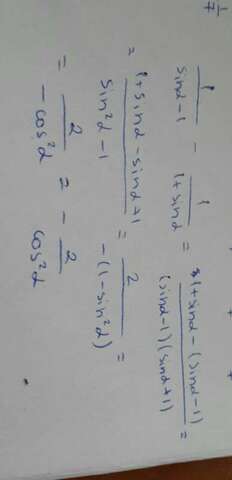 1/7
1/(sinα-1) - 1/(1+sinα) = (1+sinα-(sinα-1))/((sinα-1)(sinα+1)) =
= (1+sinα-sinα+1)/(sin²α-1) = 2/(-(1-sin²α)) =
= 2/(-cos²α) = - 2/cos²α